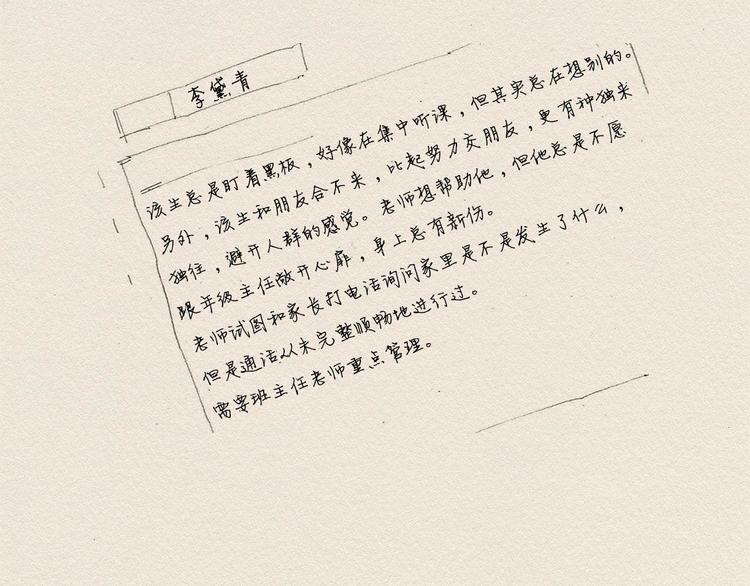 李黛青
该生总是盯着黑板，好像在集中听课，但其实总在想别的。
另外，该生和朋友合不来，比起努力交朋友，更有种独来
独往，避开人群的感觉。老师想帮助他，但他总是不愿
跟年级主任敞开心扉，身上总有新伤。
老师试图和家长打电话询问家里是不是发生了什么，
但是通话从未完整顺畅地进行过。
需要班主任老师重点管理。